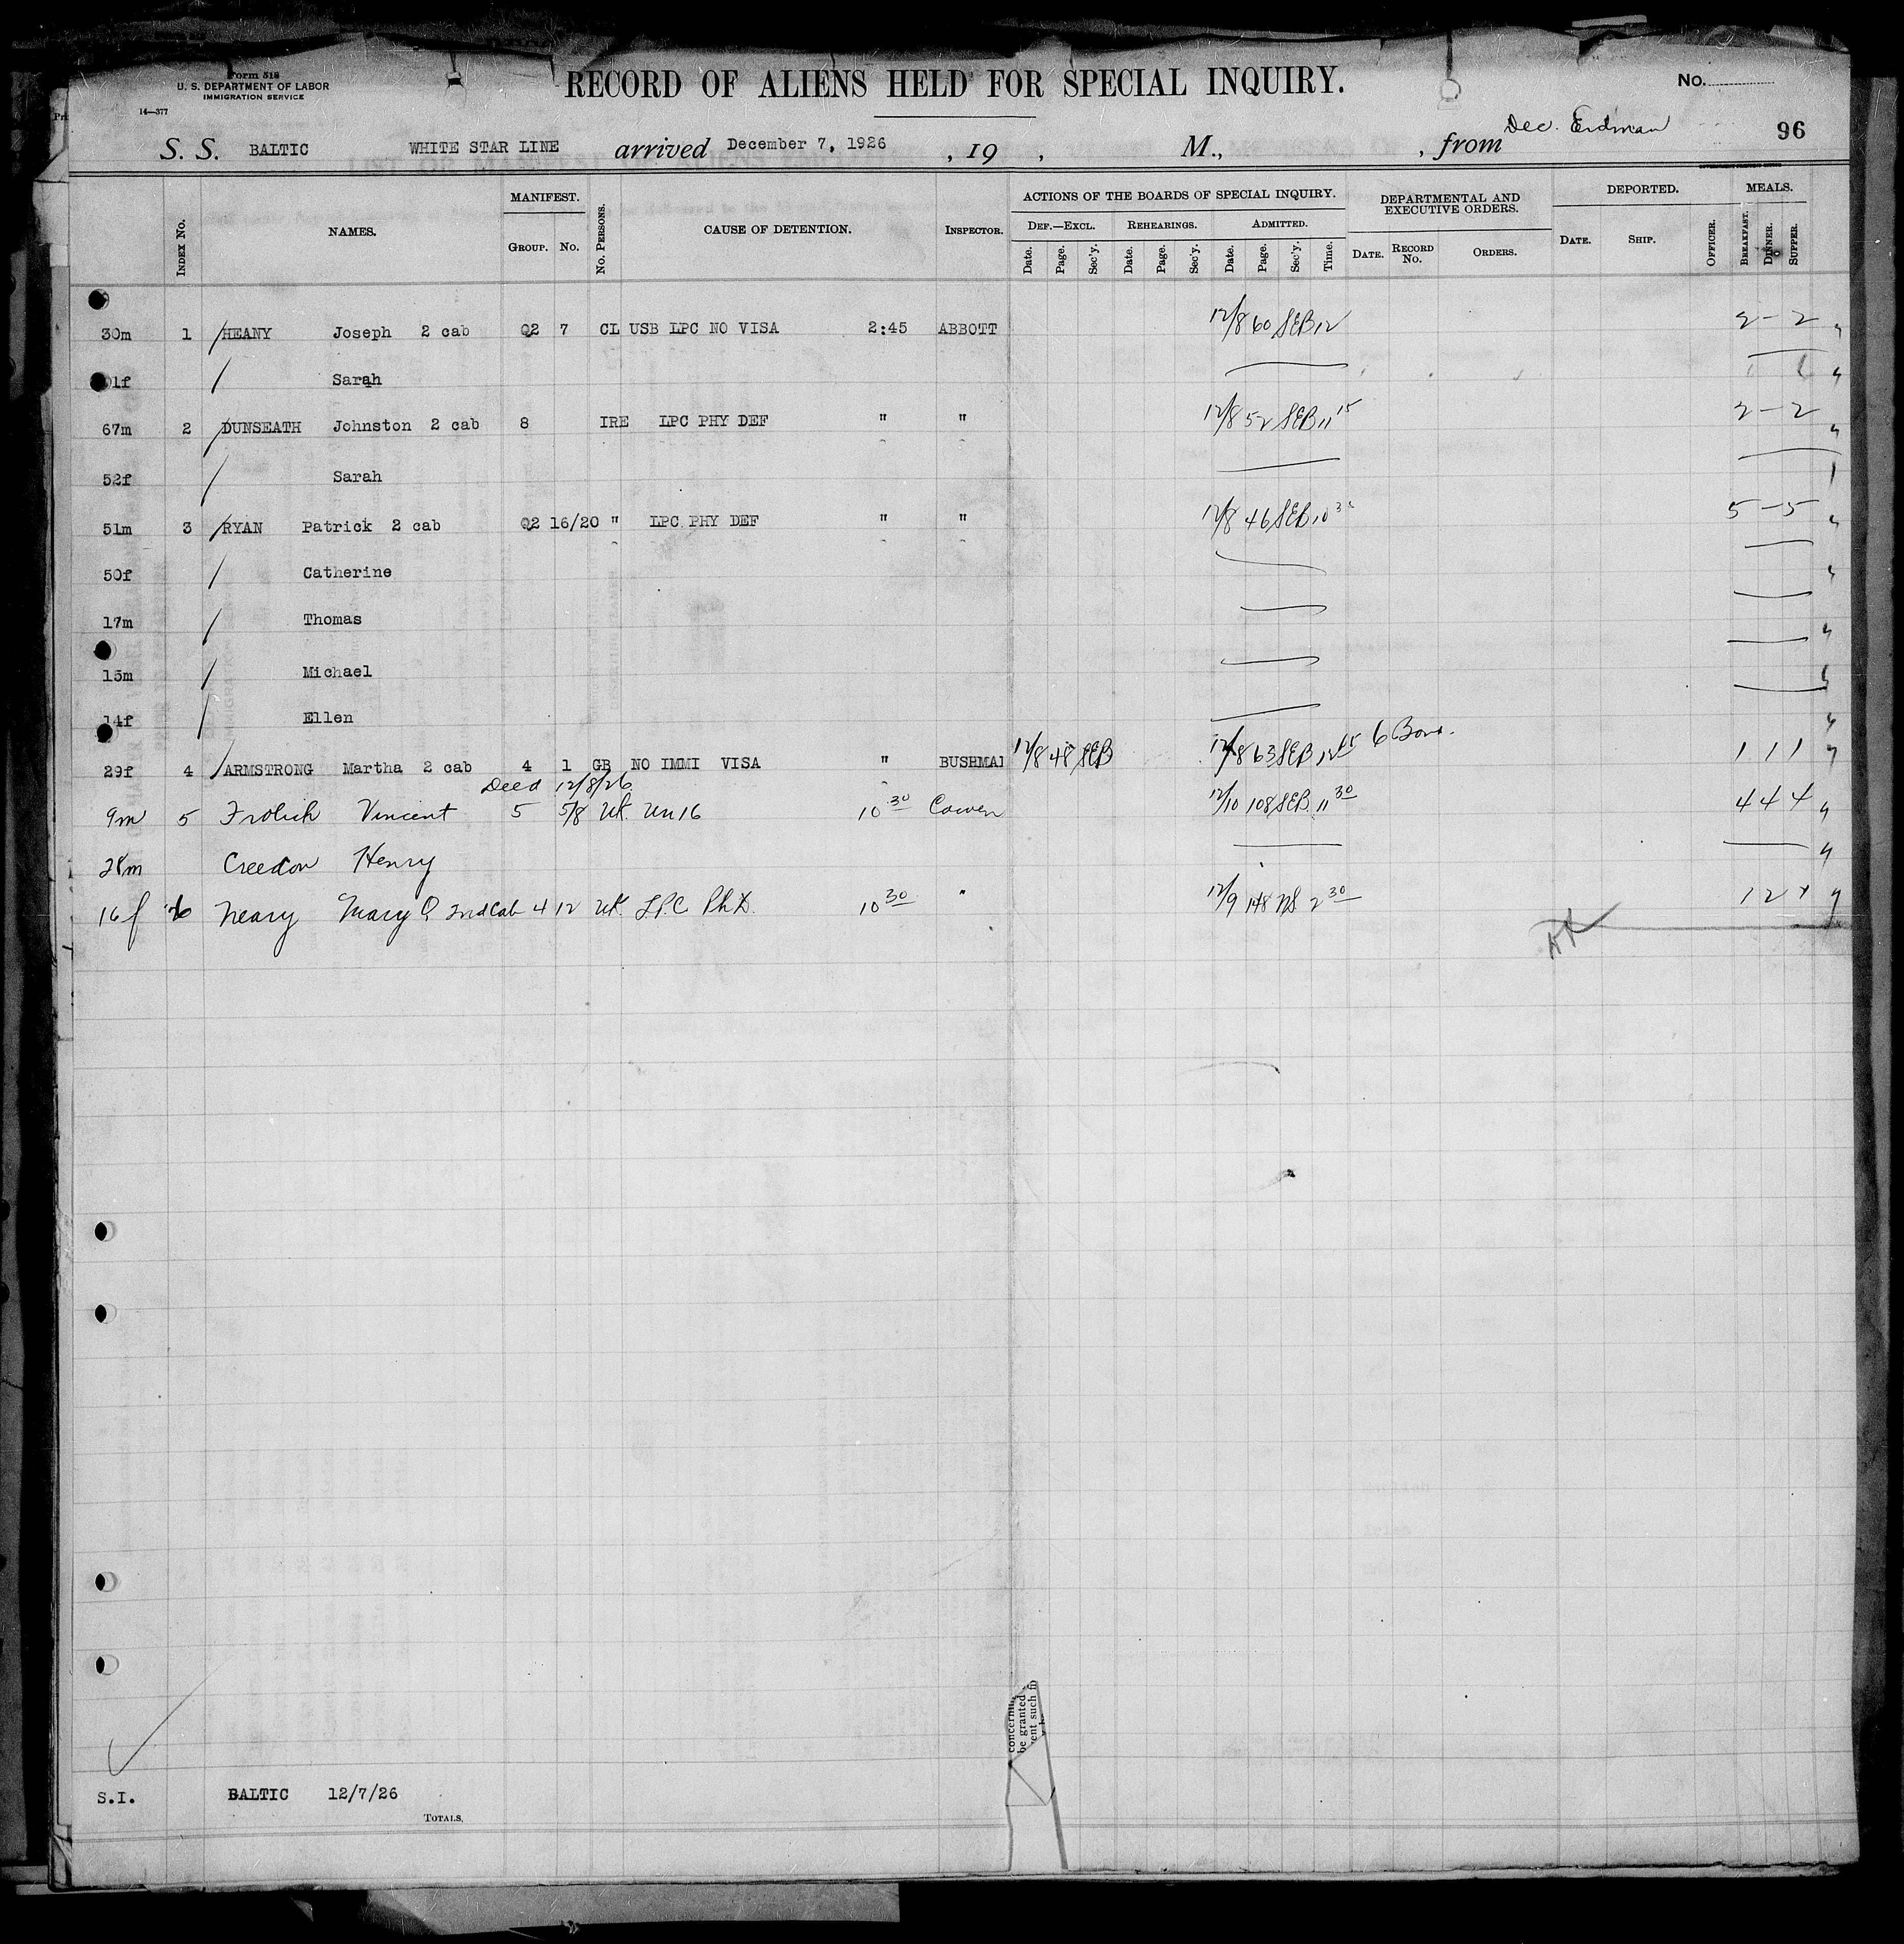 Form 518
U. S. DEPARTMENT OF LABOR
IMMIGRATION SERVICE
14—377
RECORD OF ALIENS HELD FOR SPECIAL INQUIRY.
No.
96
S. S. BALTIC WHITE STAR LINE arrived December 7, 1926 , 19 , M., , from Dec. Erdman
INDEX NO. NAMES. MANIFEST. GROUP. NO. NO. PERSONS. CAUSE OF DETENTION. INSPECTOR. ACTIONS OF THE BOARDS OF SPECIAL INQUIRY. DEPARTMENTAL AND EXECUTIVE ORDERS. DEPORTED. MEALS.
DEF.—EXCL. REHEARINGS. ADMITTED.
Date. Page. Sec'y. Date. Page. Sec'y. Date. Page. Sec'y. Time. DATE. RECORD NO. ORDERS. DATE. SHIP. OFFICER. BREAKFAST. DINNER. SUPPER.
30m 1 HEANY Joseph 2 cab Q2 7 CL USB LPC NO VISA 2:45 ABBOTT 12/8 60 SEB 12 2 - 2
1f Sarah
67m 2 DUNSEATH Johnston 2 cab 8 IRE LPC PHY DEF " " 12/8 52 SEB 11 15 2 - 2
52f Sarah
51m 3 RYAN Patrick 2 cab Q2 16/20 " LPC PHY DEF " " 12/8 46 SEB 10 5 - 5
50f Catherine
17m Thomas
15m Michael
14f Ellen
29f 4 ARMSTRONG Martha 2 cab 4 1 GB NO IMMI VISA " BUSHMAN 12/8 48 SEB 12/8 63 SEB 6 Bond. 1 1 1
Deed 12/8/26
9m 5 Frolich Vincent 5 5/8 Uk. Un 16 10 30 Cowen 12/10 108 SEB 11 30 4 4 4
28m Creedon Henry
16f 6 Neary Mary 2nd Cab 4 12 Uk. LPC Ph.D. 10 30 " 12/9 148 NS 2 30 1 2 1
S.I. BALTIC 12/7/26
TOTALS.
concerning
be granted
ent such